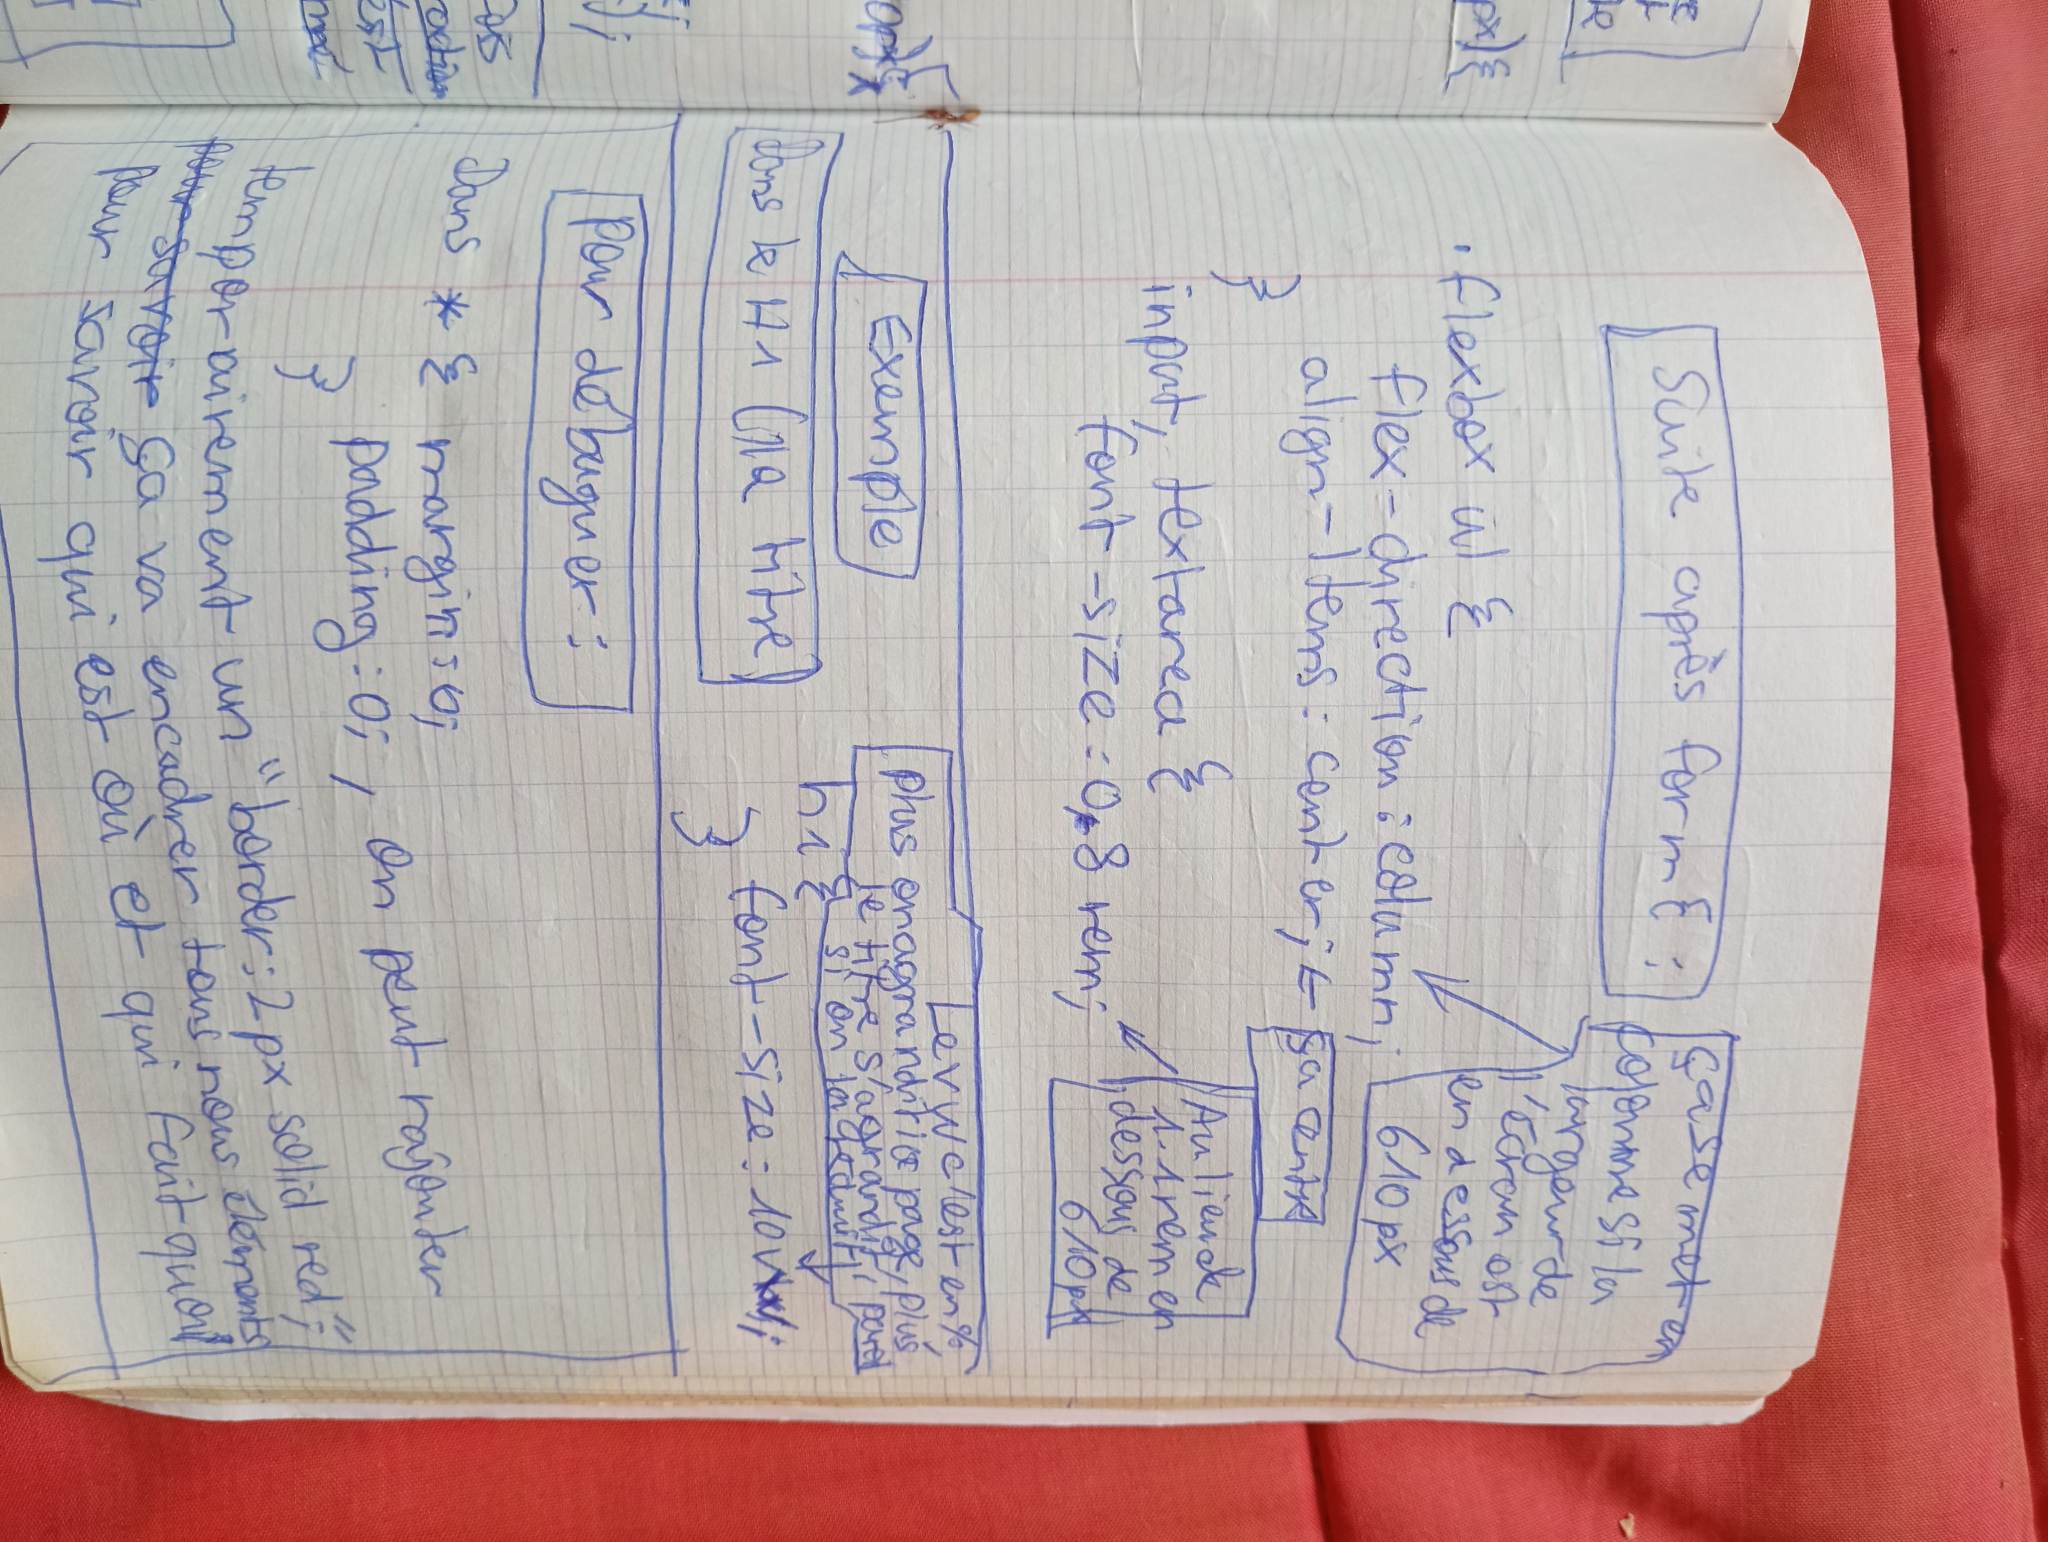 Suite après form { :
ça se met en
colonne si la
largeur de
l'écran est
en dessous de
610 px
.flexbox ul {
flex-direction : column;
align-items : center; ←
ça centre
}
input, textarea {
font-size : 0.8 rem;
Au lieu de
1.1 rem en
dessous de
610 px
Exemple
Dans le H1 (la titre)
Le vw c'est en %
plus on agrandit la page, plus
le titre s'agrandit, pareil
si on la réduit
h1 {
font-size : 10vw;
}
Pour débaguer :
Dans * { margin : 0;
padding : 0; , on peut rajouter
}
temporairement un "border : 2px solid red;"
pour savoir ça va encadrer tous nous éléments
pour savoir qui est où et qui fait quoi